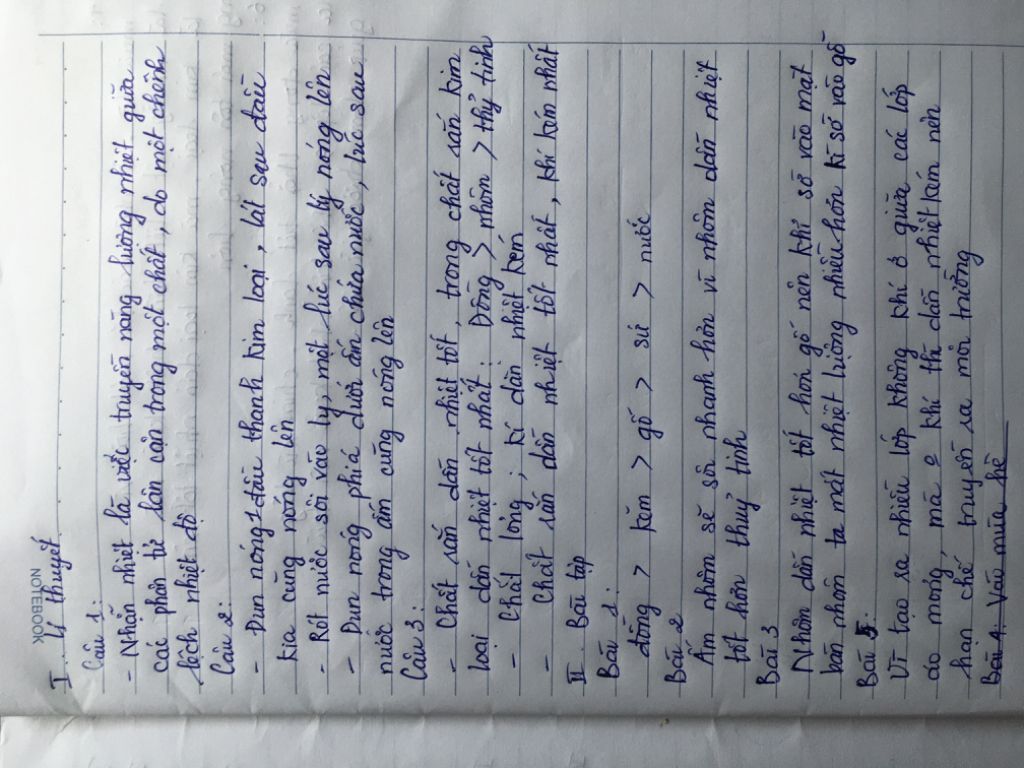 NOTEBOOK
I. Lý thuyết
Câu 1:
- Nhận nhiệt là việc truyền năng lượng nhiệt giữa
các phân tử lân cận trong một chất, do một chênh
lệch nhiệt độ
Câu 2:
- Đun nóng 1 đầu thanh kim loại, lát sau đầu
kia cũng nóng lên
- Rót nước sôi vào ly, một lúc sau ly nóng lên
- Đun nóng phía dưới ấm chứa nước, lúc sau
nước trong ấm cũng nóng lên
Câu 3:
- Chất rắn dẫn nhiệt tốt, trong chất rắn kim
loại dẫn nhiệt tốt nhất: Đồng > nhôm > thủy tinh
- Chất lỏng; kí dẫn nhiệt kém
- Chất rắn dẫn nhiệt tốt nhất, khí kém nhất
II. Bài tập
Bài 1:
đồng > kẽm > gỗ > sứ > nước
Bài 2
Ấm nhôm sẽ sôi nhanh hơn vì nhôm dẫn nhiệt
tốt hơn thuỷ tinh
Bài 3
Nhôm dẫn nhiệt tốt hơn gỗ nên khi sờ vào mặt
bàn nhôm ta mất nhiệt lượng nhiều hơn kì sờ vào gỗ
Bài 5:
Vì tạo ra nhiều lớp không khí ở giữa các lớp
áo mỏng, mà khí thì dẫn nhiệt kém nên
hạn chế truyền ra môi trường
Bài 4: Vào mùa hè